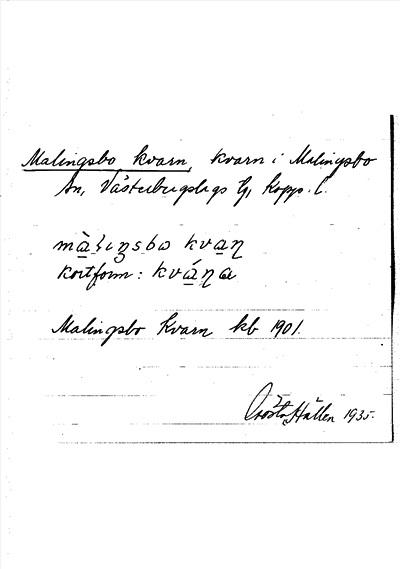 Malingsbo kvarn, kvarn i Malingsbo
sn, Västerbergslags tg, Kopp. l.
màliŋsbω kvaɳ
kortform: kváɳa
Malingsbo Kvarn kb 1901.
Hallen 1935.